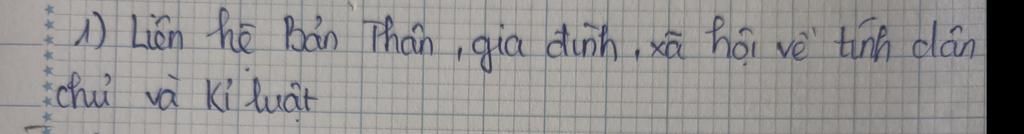 1) Liên hệ bản Thân, gia đình, xã hội về tính dân
chủ và kỉ luật